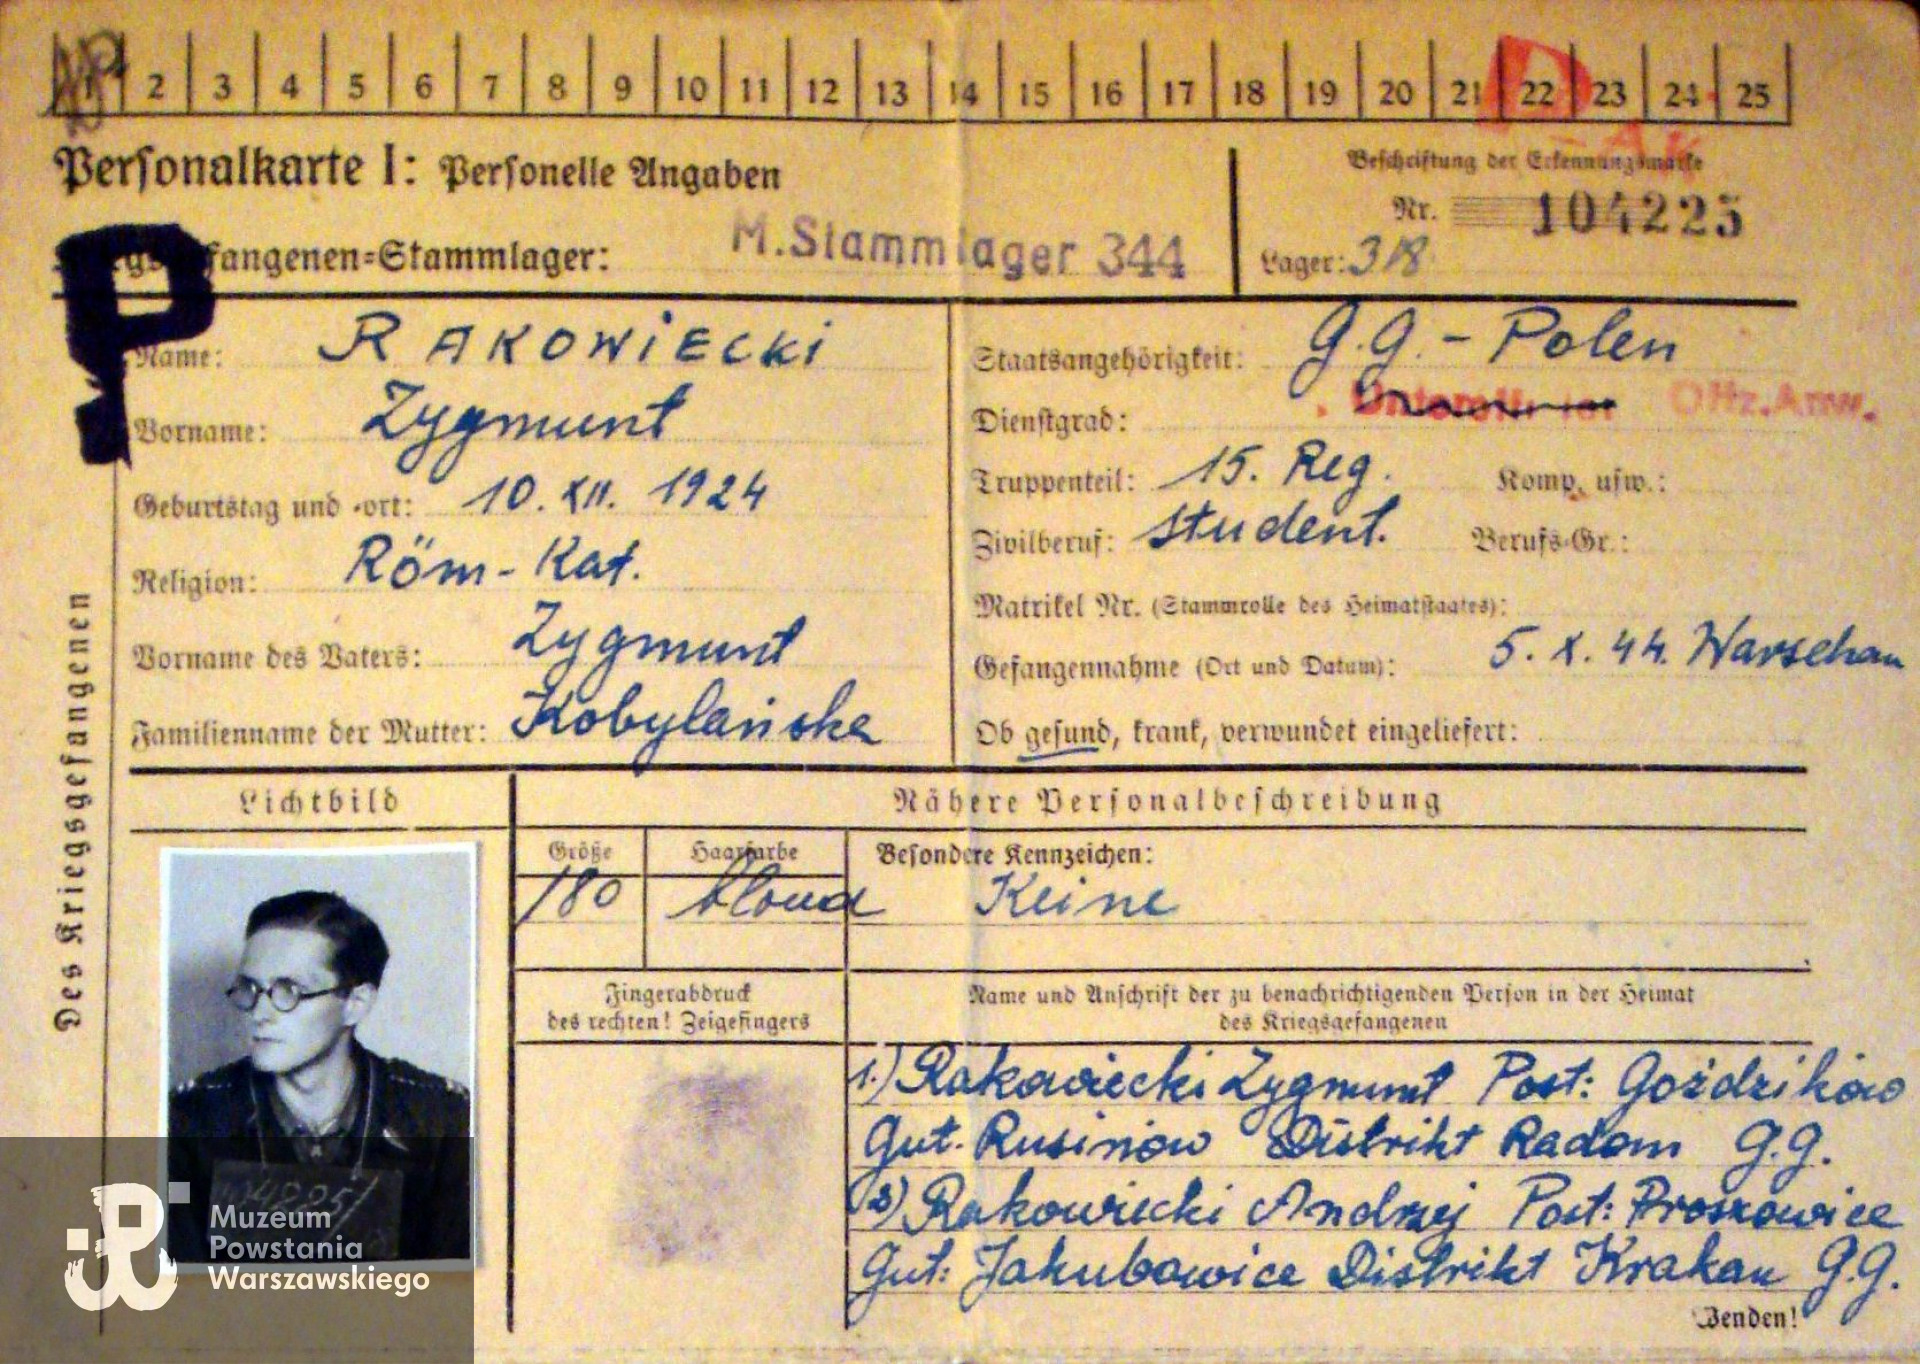 1 2 3 4 5 6 7 8 9 10 11 12 13 14 15 16 17 18 19 20 21 22 23 24 25
Personalkarte I: Personelle Angaben
Beschriftung der Erkennungsmarke
Nr. 104225
fangenen=Stammlager: M.Stammlager 344
Lager: 318
P
Des Kriegsgefangenen
Name: RAKOWIECKI
Vorname: Zygmunt
Geburtstag und -ort: 10. XII. 1924
Religion: Röm-Kat.
Vorname des Vaters: Zygmunt
Familienname der Mutter: Kobylańska
Staatsangehörigkeit: G.G.-Polen
Dienstgrad: Offz.Anw.
Truppenteil: 15. Reg. Komp. usw.:
Zivilberuf: student. Berufs-Gr.:
Matrikel Nr. (Stammrolle des Heimatstaates):
Gefangennahme (Ort und Datum): 5. X. 44. Warschau
Ob gesund, krank, verwundet eingeliefert:
Lichtbild
Nähere Personalbeschreibung
Größe Haarfarbe Besondere Kennzeichen:
180 blond Keine
Fingerabdruck
des rechten! Zeigefingers
Name und Anschrift der zu benachrichtigenden Person in der Heimat
des Kriegsgefangenen
1.) Rakowiecki Zygmunt Post: Goździków
Gut. Rusinów Distrikt Radom G.G.
2) Rakowiecki Andrzej Post: Proszowice
Gut: Jakubowice Distrikt Krakau G.G.
Wenden!
Muzeum
Powstania
Warszawskiego